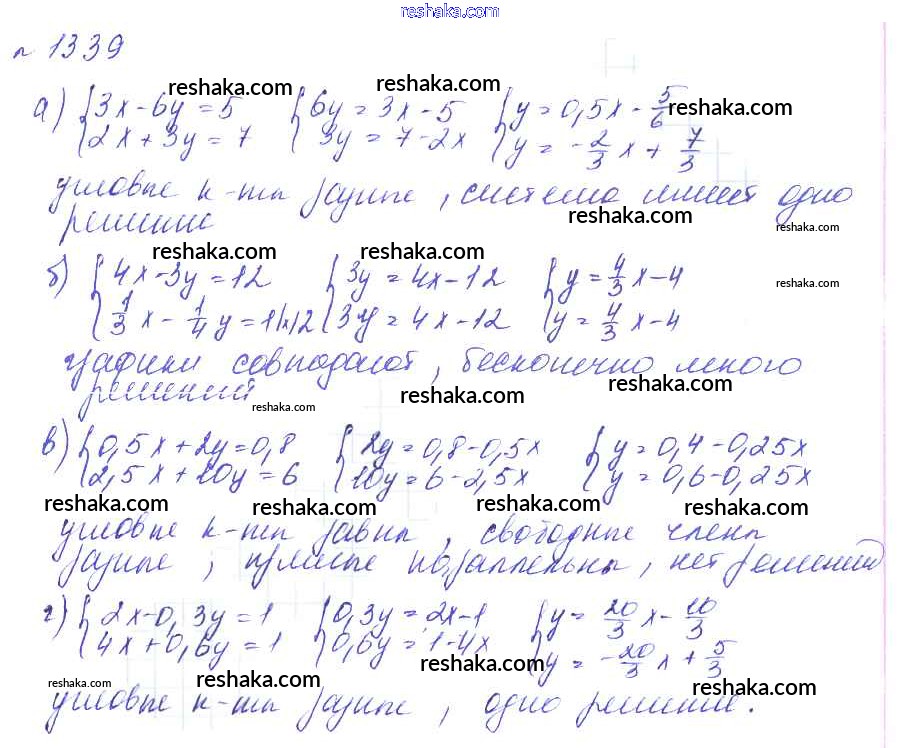 reshaka.com
№ 1339
reshaka.com reshaka.com
а) {3x-6y=5 {6y=3x-5 {y=0,5x-5/6 reshaka.com
{2x+3y=7 {3y=7-2x {y=-2/3x+7/3
угловые к-ты разные, система имеет одно
решение reshaka.com reshaka.com
reshaka.com reshaka.com
б) {4x-3y=12 {3y=4x-12 {y=4/3x-4 reshaka.com
{1/3x-1/4y=1|x12 {3y=4x-12 {y=4/3x-4
графики совпадают, бесконечно много
решений reshaka.com reshaka.com reshaka.com
в) {0,5x+2y=0,8 {2y=0,8-0,5x {y=0,4-0,25x
{2,5x+10y=6 {10y=6-2,5x {y=0,6-0,25x
reshaka.com reshaka.com reshaka.com reshaka.com
угловые к-ты равны, свободные члены
разные, прямые параллельны, нет решений
г) {2x-0,3y=1 {0,3y=2x-1 {y=20/3x-10/3
{4x+0,6y=1 {0,6y=1-4x {y=-20/3x+5/3
reshaka.com reshaka.com reshaka.com reshaka.com
угловые к-ты разные, одно решение.